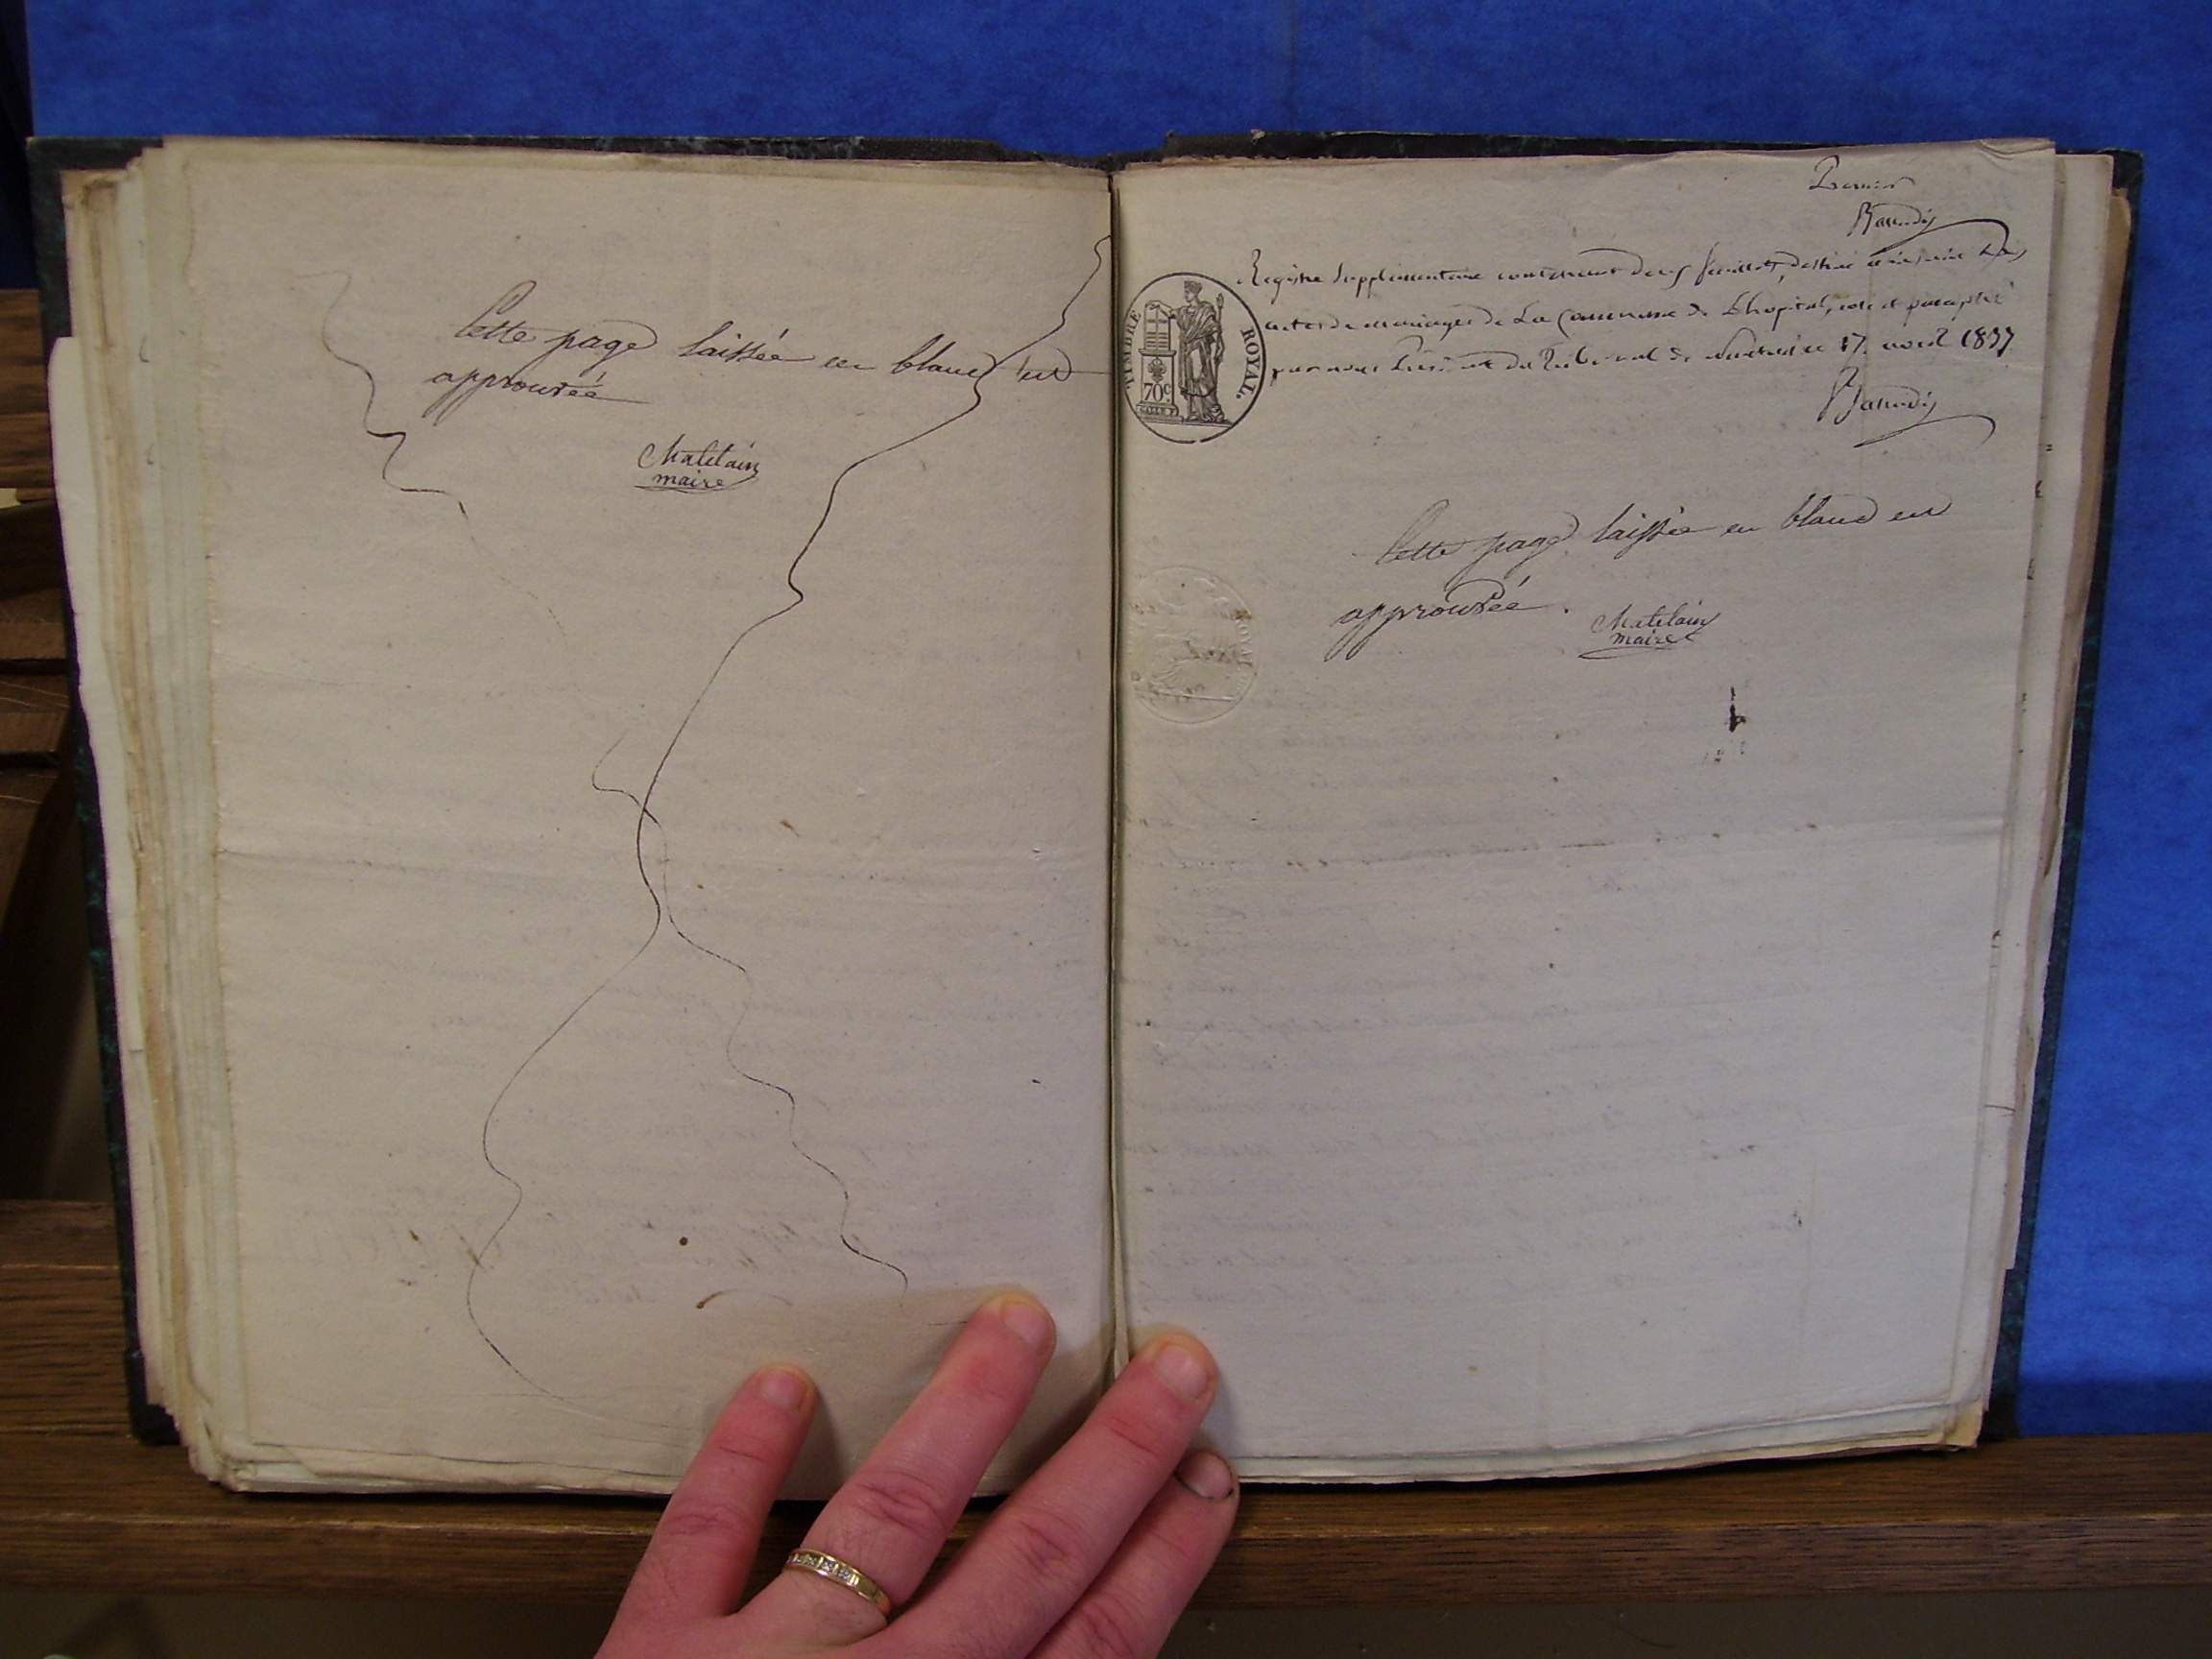 Cette page laissée en blanc est
approuvée
Chatelain
maire
Premier
TIMBRE ROYAL.
70c
Registre supplémentaire contenant deux feuillets, destiné à inscrire les
actes de mariages de La Commune de Lhopital, coté et paraphé
par nous Président du Tribunal de 17 avril 1837
Cette page laissée en blanc est
approuvée.
Chatelain
maire